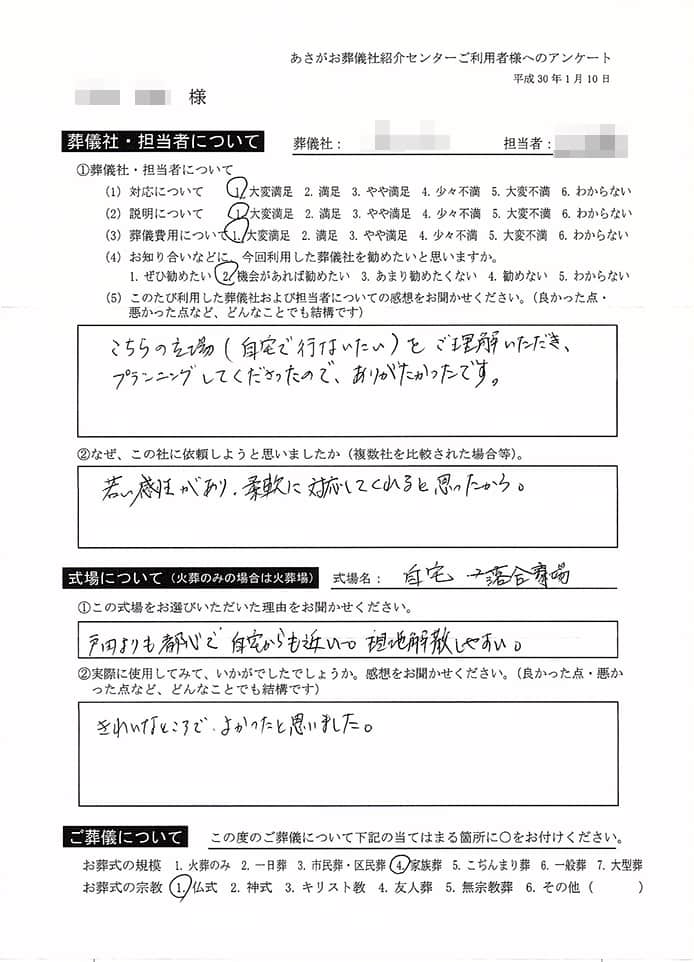 あさがお葬儀社紹介センターご利用者様へのアンケート
平成30年1月10日
様
葬儀社・担当者について 葬儀社: 担当者:
①葬儀社・担当者について
(1) 対応について 1. 大変満足 2. 満足 3. やや満足 4. 少々不満 5. 大変不満 6. わからない
(2) 説明について 1. 大変満足 2. 満足 3. やや満足 4. 少々不満 5. 大変不満 6. わからない
(3) 葬儀費用について 1. 大変満足 2. 満足 3. やや満足 4. 少々不満 5. 大変不満 6. わからない
(4) お知り合いなどに、今回利用した葬儀社を勧めたいと思いますか。
1. ぜひ勧めたい 2. 機会があれば勧めたい 3. あまり勧めたくない 4. 勧めない 5. わからない
(5) このたび利用した葬儀社および担当者についての感想をお聞かせください。(良かった点・
悪かった点など、どんなことでも結構です)
こちらの立場(自宅で行ないたい)をご理解いただき、
プランニングしてくださったので、ありがたかったです。
②なぜ、この社に依頼しようと思いましたか(複数社を比較された場合等)。
若い感性があり、柔軟に対応してくれると思ったから。
式場について(火葬のみの場合は火葬場) 式場名: 自宅→落合斎場
①この式場をお選びいただいた理由をお聞かせください。
戸田よりも都心で自宅からも近い。現地解散しやすい。
②実際に使用してみて、いかがでしたでしょうか。感想をお聞かせください。(良かった点・悪か
った点など、どんなことでも結構です)
きれいなところで、よかったと思いました。
ご葬儀について この度のご葬儀について下記の当てはまる箇所に〇をお付けください。
お葬式の規模 1. 火葬のみ 2. 一日葬 3. 市民葬・区民葬 4. 家族葬 5. こぢんまり葬 6. 一般葬 7. 大型葬
お葬式の宗教 1. 仏式 2. 神式 3. キリスト教 4. 友人葬 5. 無宗教葬 6. その他( )